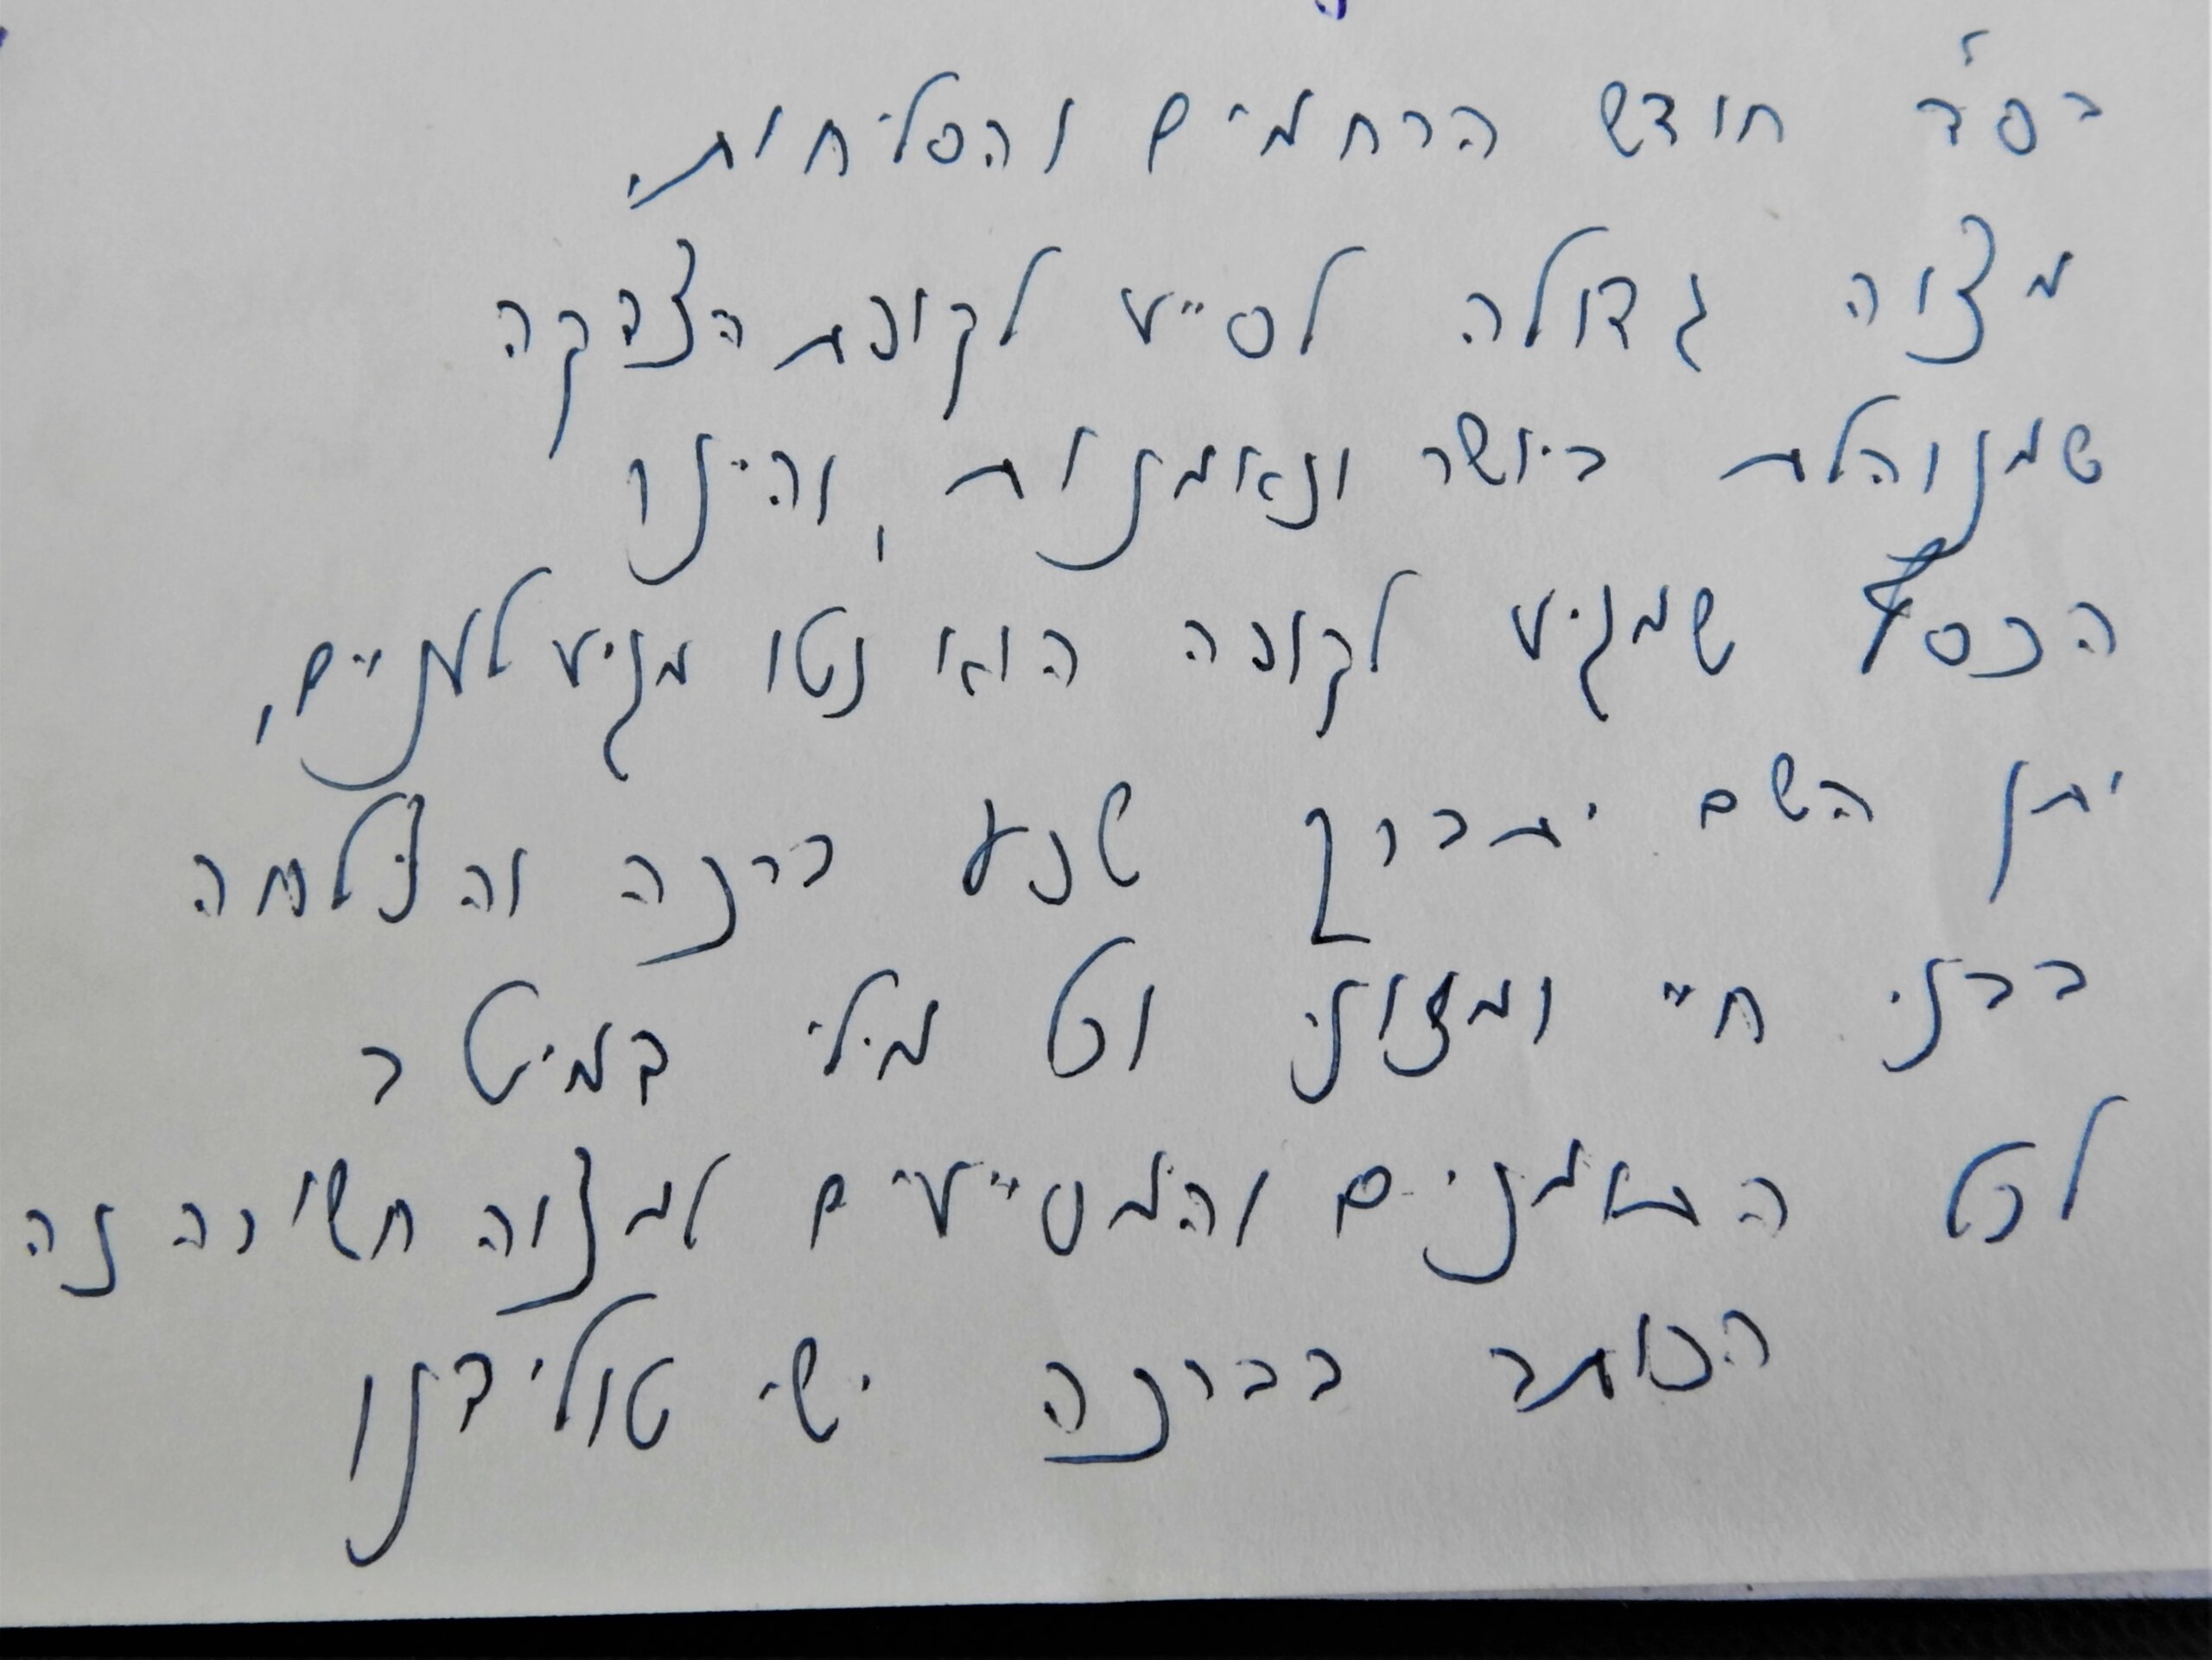 בס"ד חודש הרחמים והסליחות.
מצוה גדולה לסייע לקופת הצדקה
שמנוהלת ביושר ונאמנות, והיינו
הכסף שמגיע לקופה הוא נטו מגיע לעניים,
יתן השם יתברך שפע ברכה והצלחה
בבני חיי ומזוני וכל מילי דמיטב
לכל התומכים והמסייעים למצוה חשובה זה
הכותב בברכה ישי טולידנו